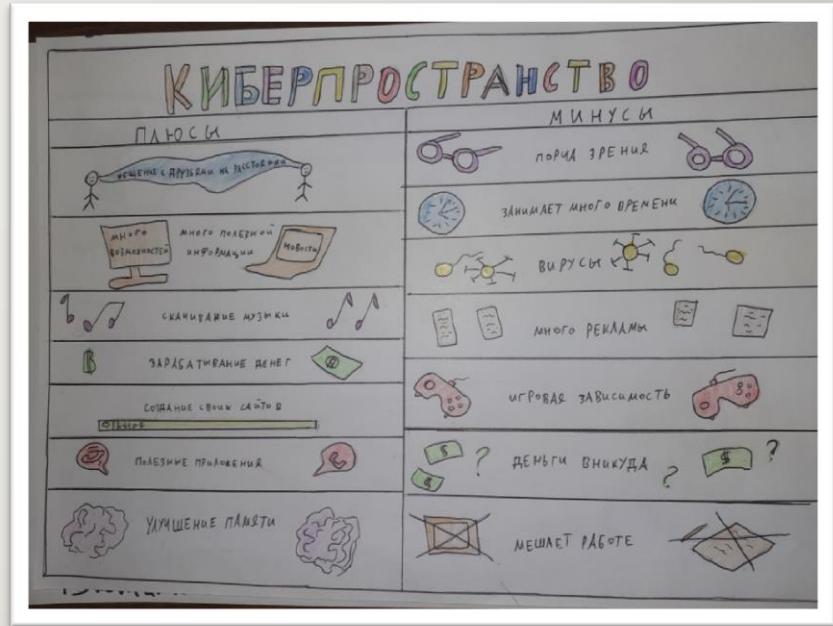 КИБЕРПРОСТРАНСТВО
ПЛЮСЫ
ОБЩЕНИЕ С ДРУЗЬЯМИ НА РАССТОЯНИИ
МНОГО
ВОЗМОЖНОСТЕЙ
МНОГО ПОЛЕЗНОЙ
ИНФОРМАЦИИ
НОВОСТИ
СКАЧИВАНИЕ МУЗЫКИ
ЗАРАБАТЫВАНИЕ ДЕНЕГ
СОЗДАНИЕ СВОИХ САЙТОВ
ПОЛЕЗНЫЕ ПРИЛОЖЕНИЯ
УЛУЧШЕНИЕ ПАМЯТИ
МИНУСЫ
ПОРЧА ЗРЕНИЯ
ЗАНИМАЕТ МНОГО ВРЕМЕНИ
ВИРУСЫ
МНОГО РЕКЛАМЫ
ИГРОВАЯ ЗАВИСИМОСТЬ
$ $ ? ДЕНЬГИ ВНИКУДА ? $ ?
МЕШАЕТ РАБОТЕ